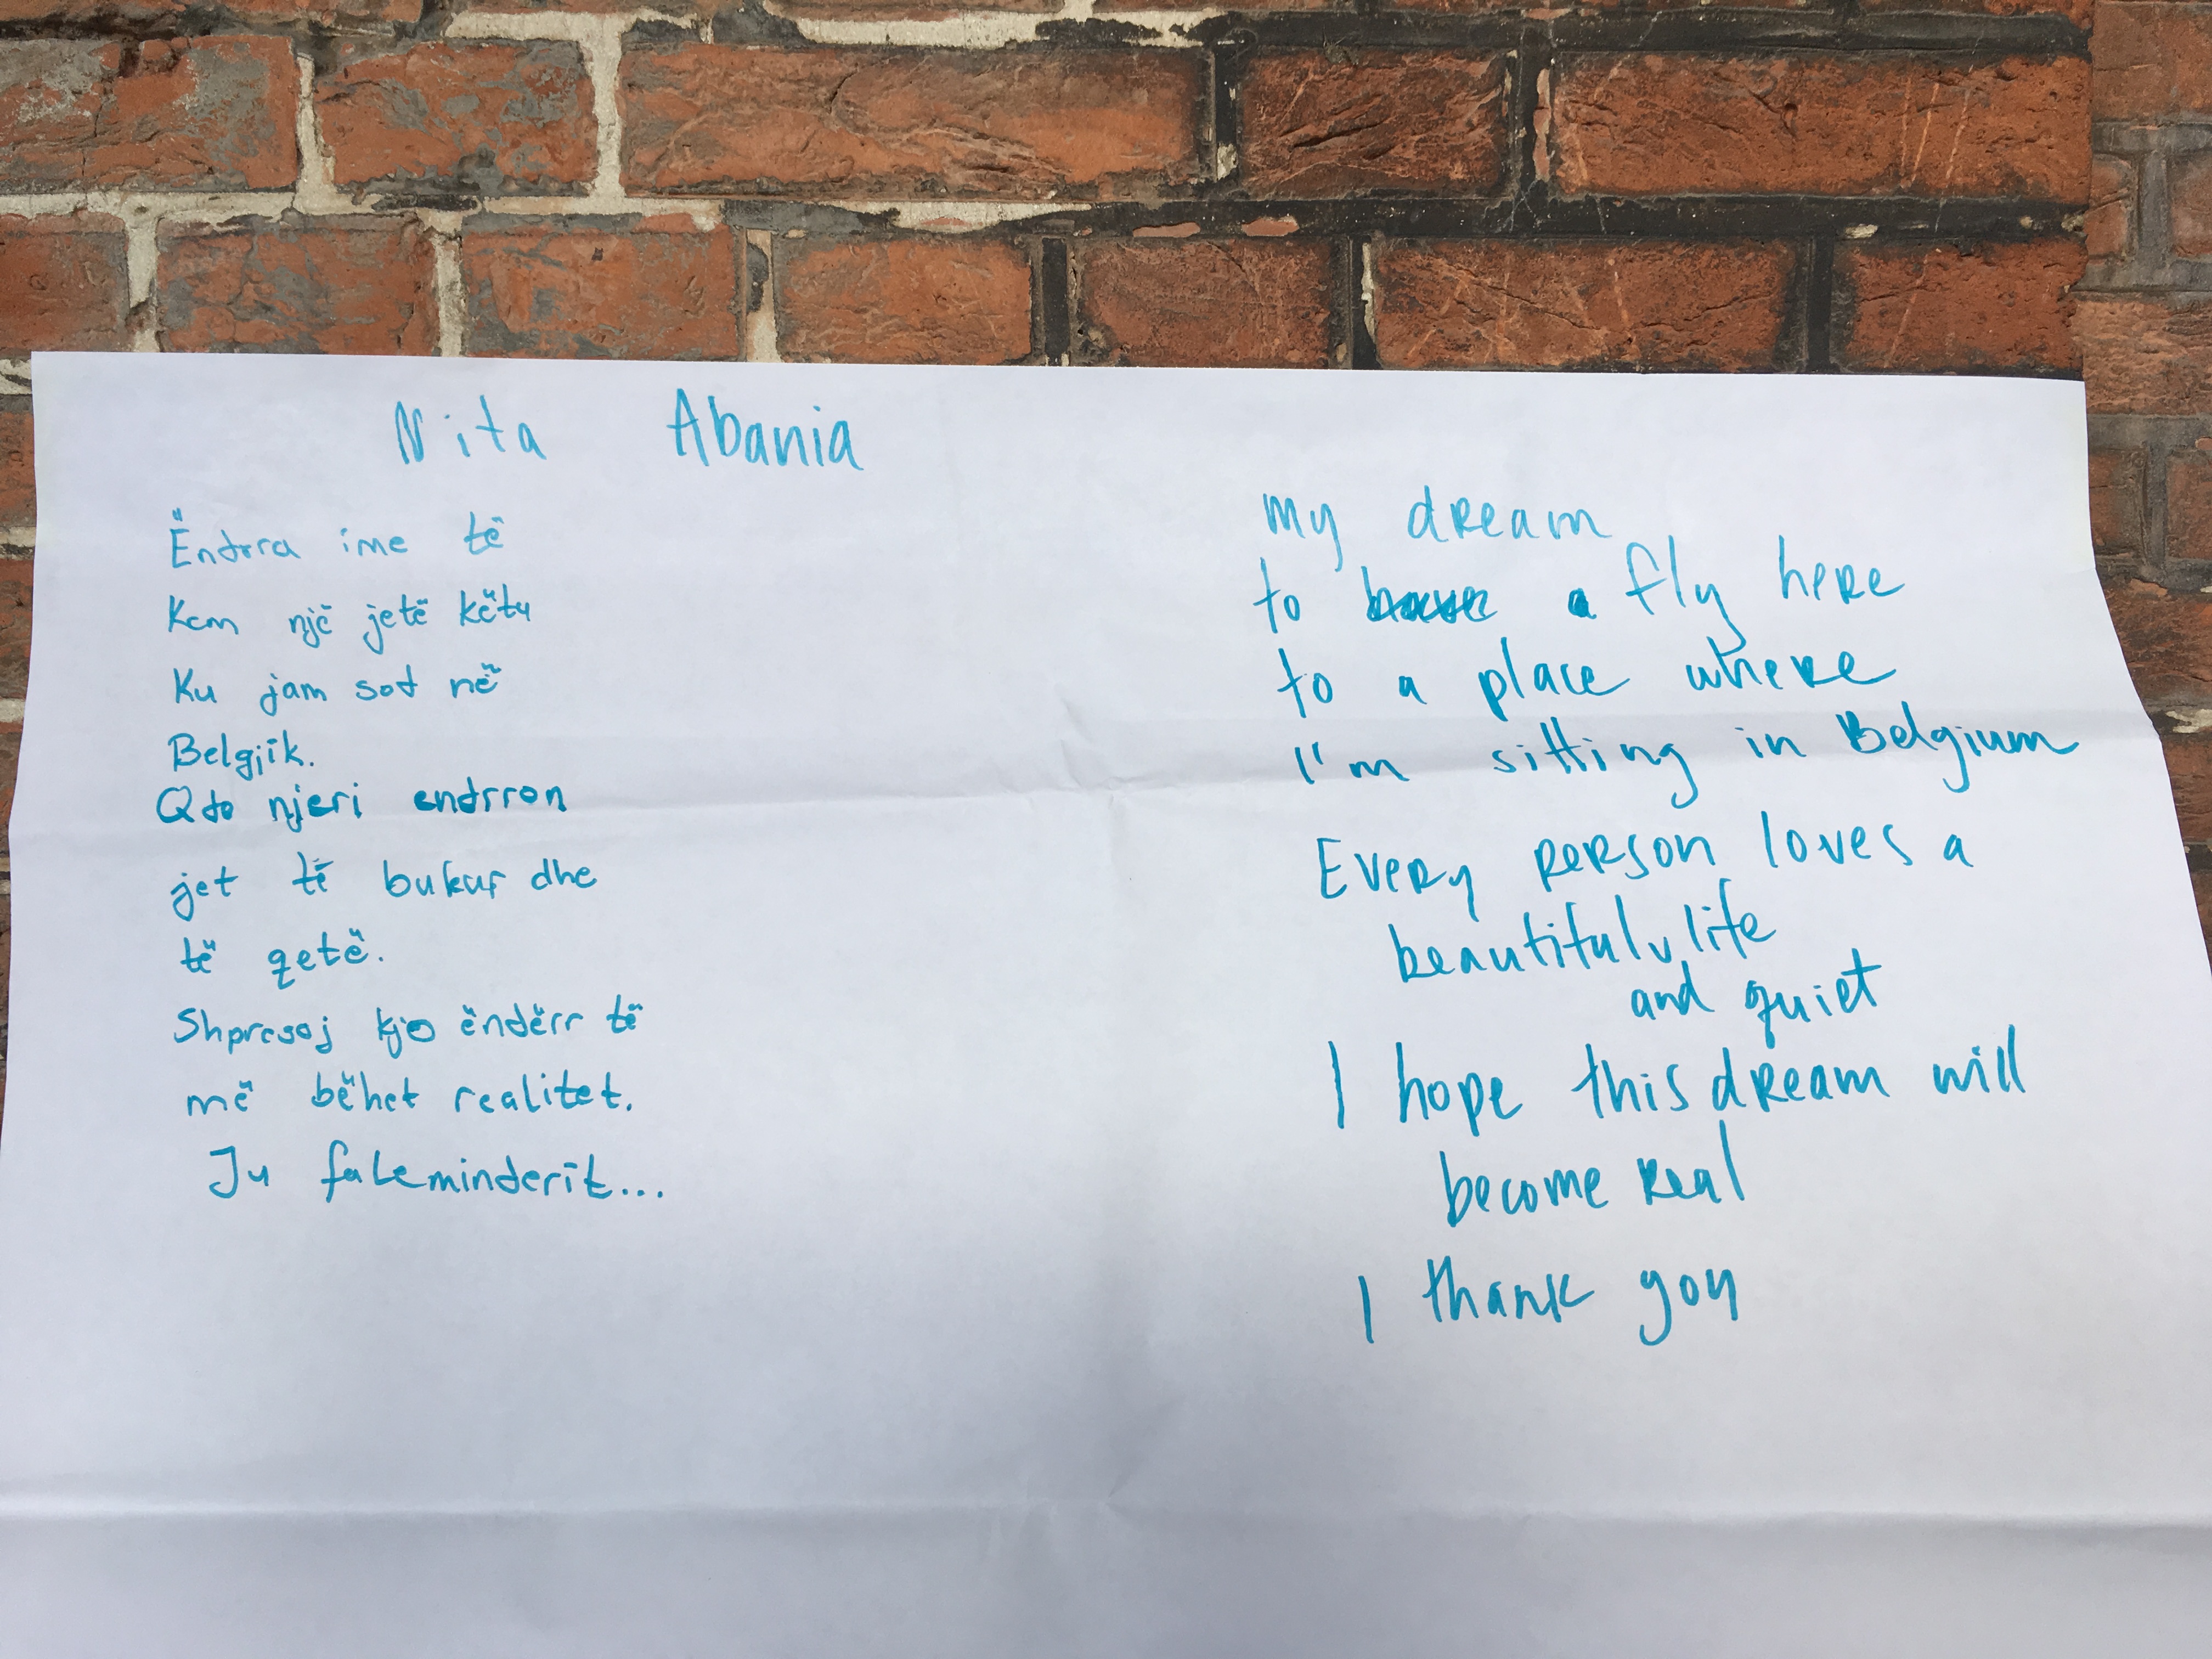 Nita Abania
Ëndrra ime të
Kem një jetë këtu
Ku jam sot në
Belgjik.
Qdo njeri endrron
jet të bukur dhe
të qetë.
Shpresoj kjo ëndërr të
më bëhet realitet.
Ju faleminderit...
my dream
to a fly here
to a place where
I'm sitting in Belgium
Every person loves a
beautiful life
and quiet
I hope this dream will
become real
I thank you